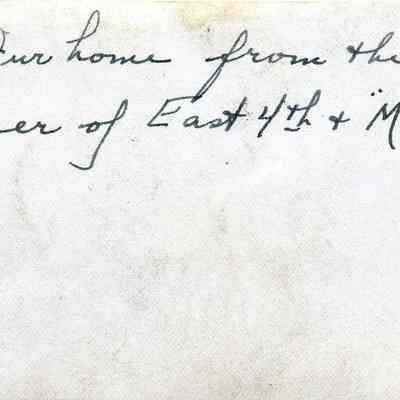 Our home from the
er of East 4th + "M